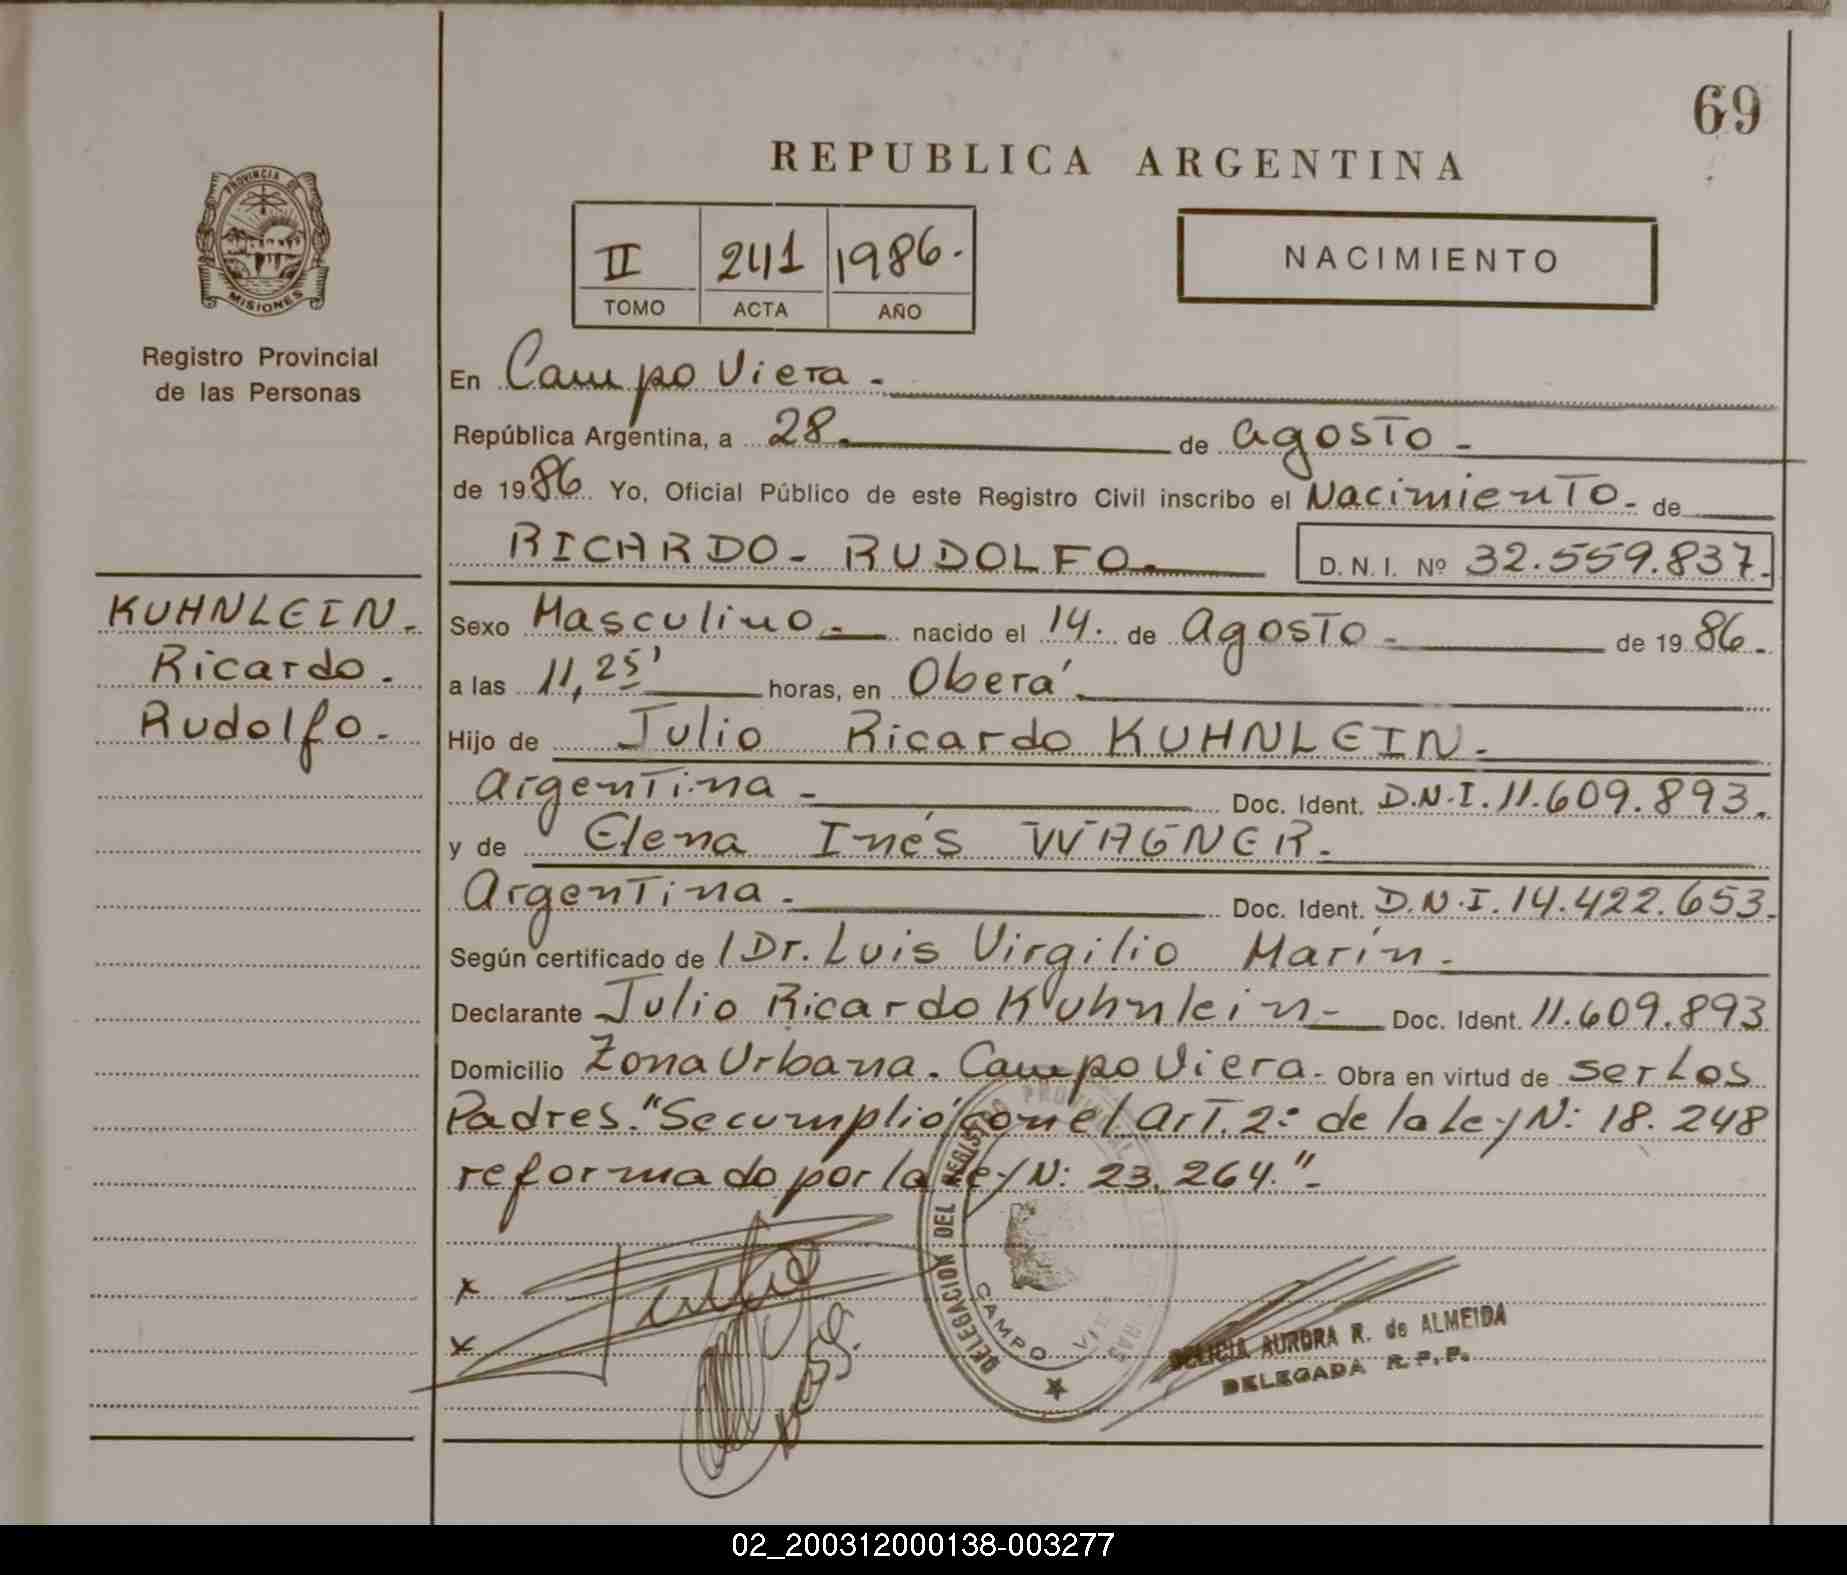 69
REPUBLICA ARGENTINA
PROVINCIA DE
MISIONES
Registro Provincial
de las Personas
II 241 1986.
TOMO ACTA AÑO
NACIMIENTO
En Campo Viera.
República Argentina, a 28. de agosto.
de 1986. Yo, Oficial Público de este Registro Civil inscribo el Nacimiento. de
RICARDO. RUDOLFO. D. N. I. Nº 32.559.837.
KUHNLEIN.
Ricardo.
Rudolfo.
Sexo Masculino. nacido el 14. de agosto. de 1986.
a las 11,25' horas, en Oberá.
Hijo de Julio Ricardo KUHNLEIN.
argentina. Doc. Ident. D.N.I. 11.609.893.
y de Elena Inés WAGNER.
argentina. Doc. Ident. D.N.I. 14.422.653.
Según certificado de / Dr. Luis Virgilio Marín.
Declarante Julio Ricardo Kuhnlein. Doc. Ident. 11.609.893
Domicilio Zona Urbana. Campo Viera. Obra en virtud de ser Los
Padres. "Se cumplió con el art. 2º de la Ley N: 18.248
reformado por la Ley N: 23.264."
x
x
DELEGACION DEL REGISTRO PROVINCIAL
CAMPO
AURORA R. de ALMEIDA
DELEGADA R.P.P.
02_200312000138-003277